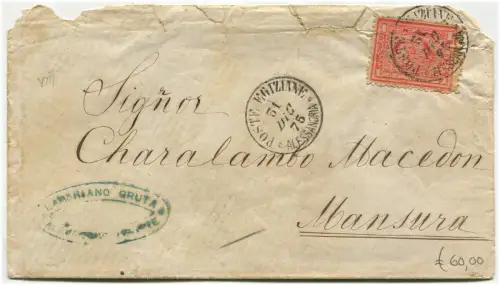 Signor
POSTE EGIZIANE
31
DIC
75
ALESSANDRIA
Charalambo Macedon
Mansura
€60,00